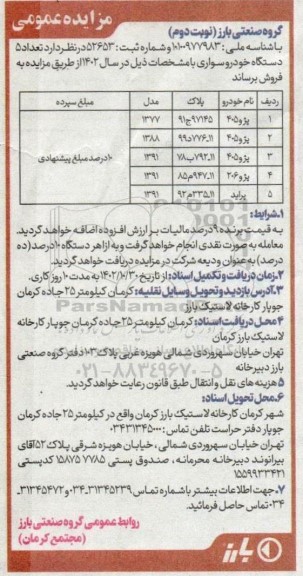 مزایده عمومی
گروه صنعتی بارز (نوبت دوم)
با شناسه ملی : ۱۰۱۰۰۹۷۷۹۸۳ و شماره ثبت : ۵۲۶۵۳ در نظر دارد تعداد ۵
دستگاه خودرو سواری با مشخصات ذیل در سال ۱۴۰۲ از طریق مزایده به
فروش برساند
ردیف نام خودرو پلاک مدل مبلغ سپرده
۱ پژو ۴۰۵ ۹۷۱۴۵ج۹۱ ۱۳۷۷
۲ پژو ۴۰۵ ۱۱_۷۷۶د۹۹ ۱۳۸۸
۳ پژو ۴۰۵ ۱۱_۷۹۲ب۷۸ ۱۳۹۱ ۱۰درصد مبلغ پیشنهادی
۴ پژو ۲۰۶ ۱۱_۹۴۷م۸۵ ۱۳۹۱
۵ پراید ۱۱_۲۳۵م۹۲ ۱۳۹۱
۱.شرایط:
به قیمت برنده ۹ درصد مالیات بر ارزش افزوده اضافه خواهد گردید.
معامله به صورت نقدی انجام خواهد گرفت و به ازا هر دستگاه ۱۰ درصد (ده
درصد) به عنوان ودیعه شرکت در مزایده دریافت خواهد گردید.
۲.زمان دریافت و تکمیل اسناد: از تاریخ ۱۴۰۲/۱۰/۳۰ به مدت ۱۰ روز کاری.
۳.آدرس بازدید و تحویل وسایل نقلیه: کرمان کیلومتر ۲۵ جاده کرمان
جوپار کارخانه لاستیک بارز
۴ محل دریافت اسناد: کرمان کیلومتر ۲۵ جاده کرمان جوپار کارخانه
لاستیک بارز کرمان
تهران خیابان سهروردی شمالی هویزه غربی پلاک ۱۰۳ دفتر گروه صنعتی
بارز دبیرخانه
۵ هزینه های نقل و انتقال طبق قانون رعایت خواهد گردید.
۶.محل تحویل اسناد:
شهر کرمان کارخانه لاستیک بارز کرمان واقع در کیلومتر ۲۵ جاده کرمان
جوپار دفتر حراست تلفن تماس : ۰۳۴۳۱۳۴۵۰۰۰
تهران خیابان سهروردی شمالی ، خیابان هویزه شرقی پلاک ۵۲ آقای
بیرانوند دبیرخانه محرمانه ، صندوق پستی ۷۷۸۵ ۱۵۸۷۵ کدپستی
۱۵۵۹۹۳۳۴۲۱
۷. جهت اطلاعات بیشتر با شماره تماس ۳۱۳۴۵۲۳۹_۰۳۴ و ۳۱۳۴۵۴۷۲_
۰۳۴ تماس حاصل فرمائید.
روابط عمومی گروه صنعتی بارز
(مجتمع کرمان)
بارز